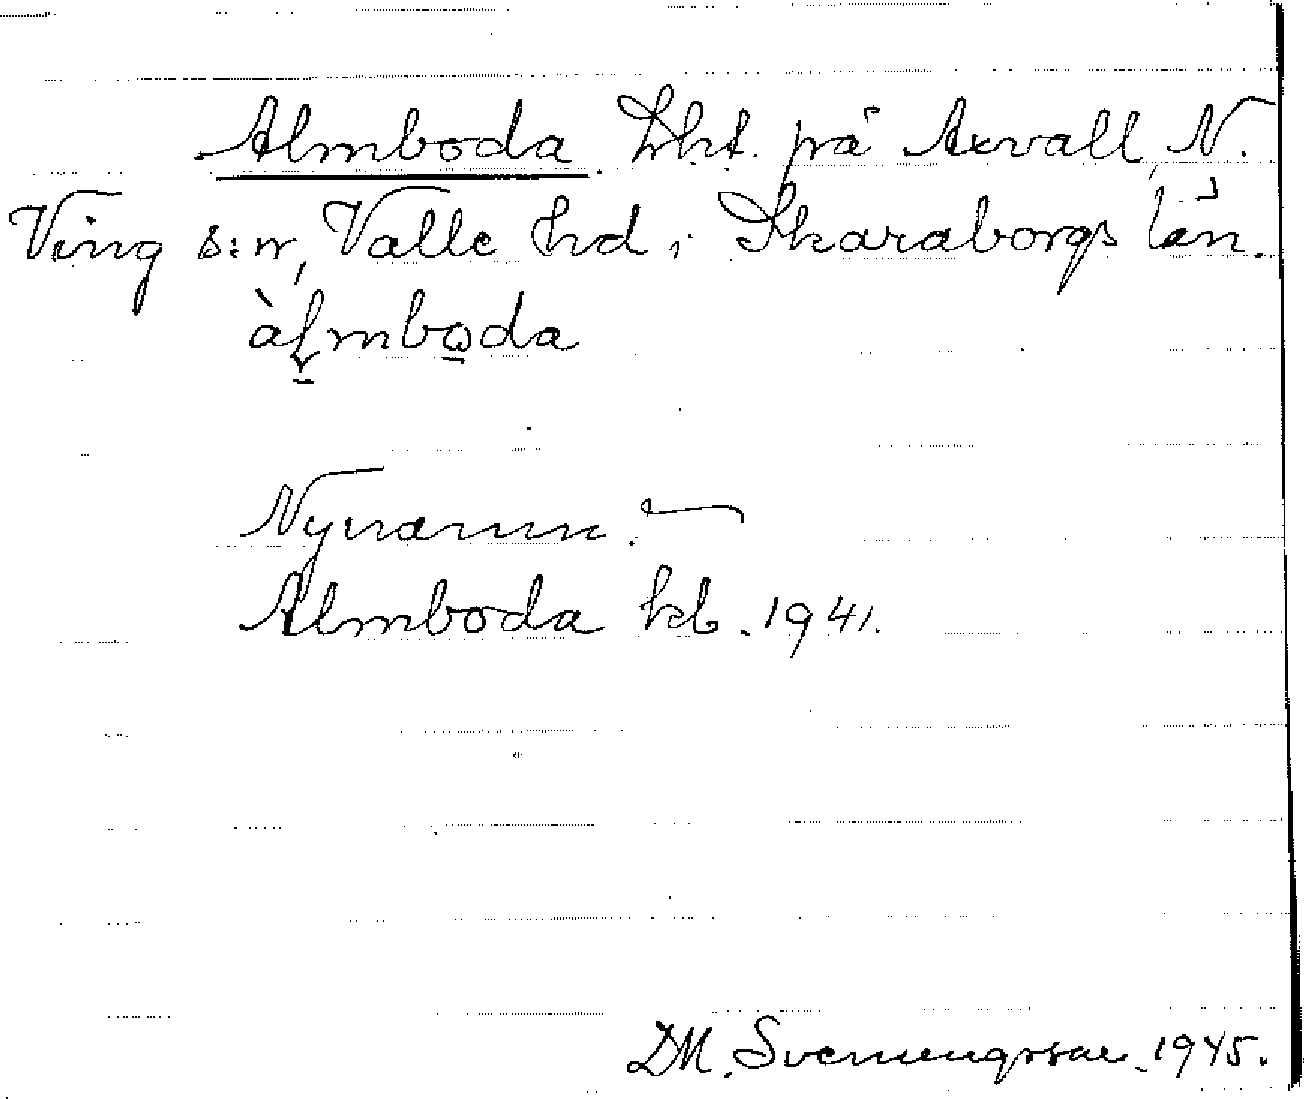 Almboda Lht. på Axvall, N.
Ving s:n, Valle hd, Skaraborgs län.
àlmboda
Nynamn.
Almboda kb. 1941.
DM. Svenungsson 1945.